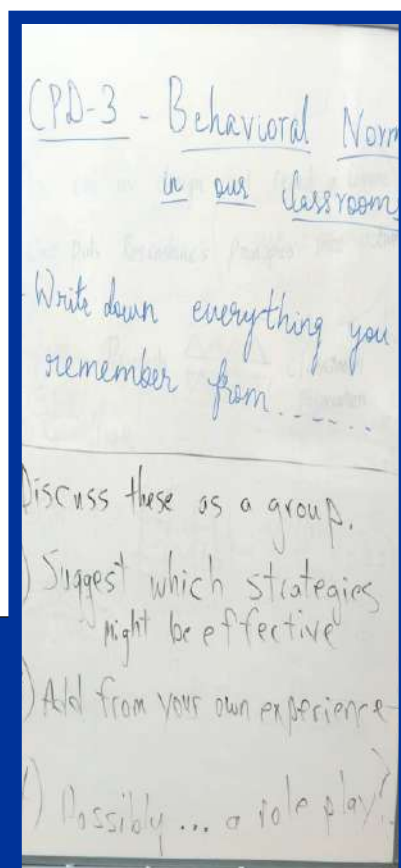 CPD-3 - Behavioral Norm
in our Classroom
- Write down everything you
remember from......
Discuss these as a group.
) Suggest which strategies
might be effective
) Add from your own experience
) Possibly ... a role play?